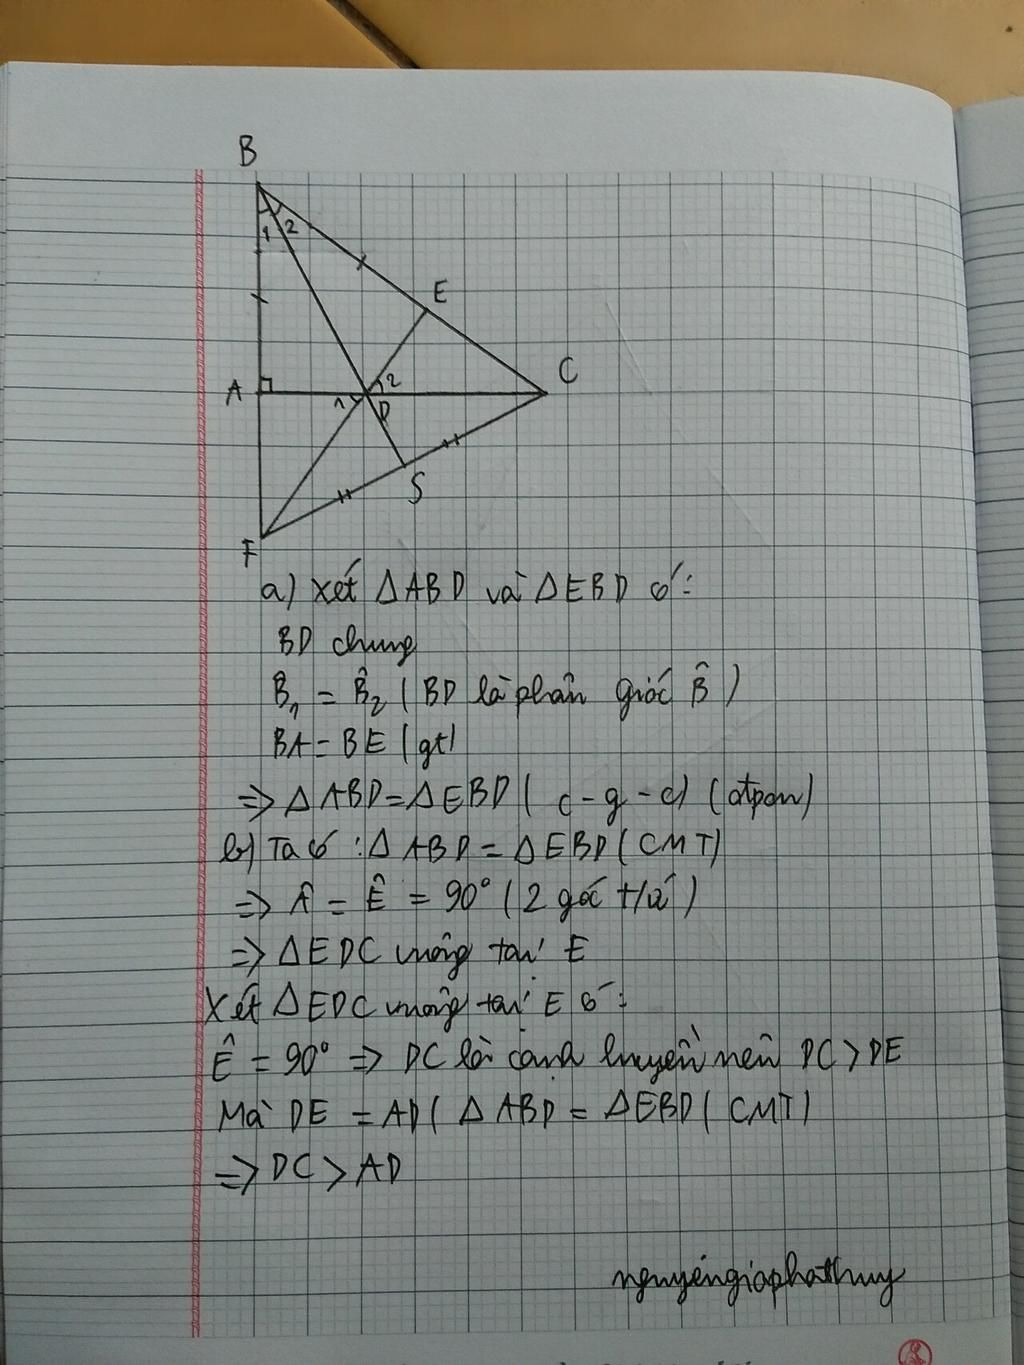 B
1 2
E
A
2
C
1
D
S
F
a) Xét ΔABD và ΔEBD có:
BD chung
B̂₁ = B̂₂ (BD là phân giác B̂)
BA = BE (gt)
=> ΔABD = ΔEBD (c-g-c) (đpcm)
b) Ta có: ΔABD = ΔEBD (CMT)
=> Â = Ê = 90° (2 góc t/ứ)
=> ΔEDC vuông tại E
Xét ΔEDC vuông tại E có:
Ê = 90° => DC là cạnh huyền nên DC > DE
Mà DE = AD (ΔABD = ΔEBD (CMT)
=> DC > AD
nguyengiaphathuy